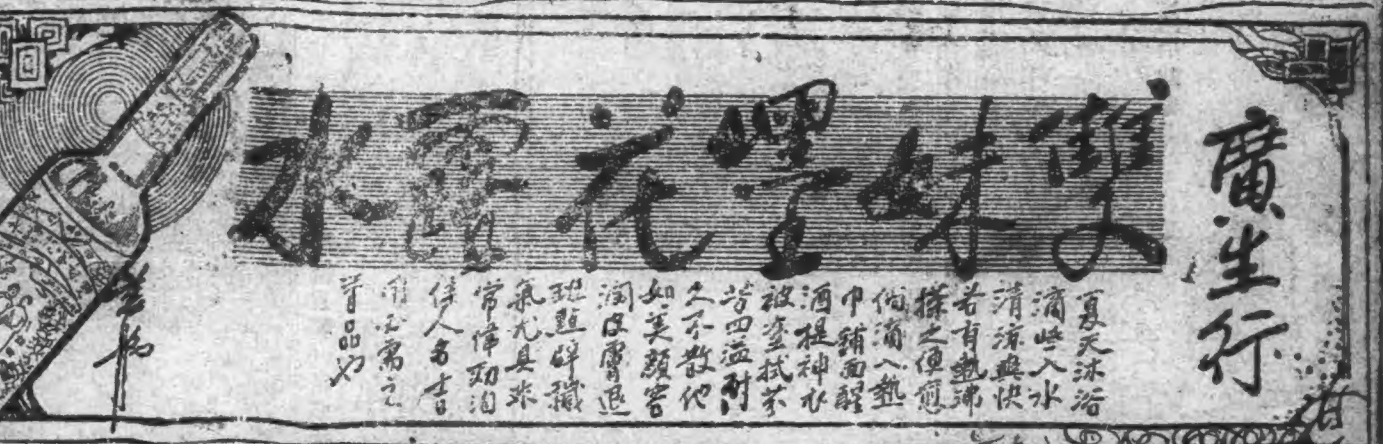 廣生行
雙妹嚜花露水
夏天沐浴
滴些入水
清涼爽快
若有熱沸
搽之便愈
倘滴入熱
巾鋪面醒
酒提神衣
被塗拭芬
芳四溢耐
久不散他
如美顏容
潤皮膚退
斑點辟穢
氣尤具非
常偉効洵
佳人名士
必需之
品也